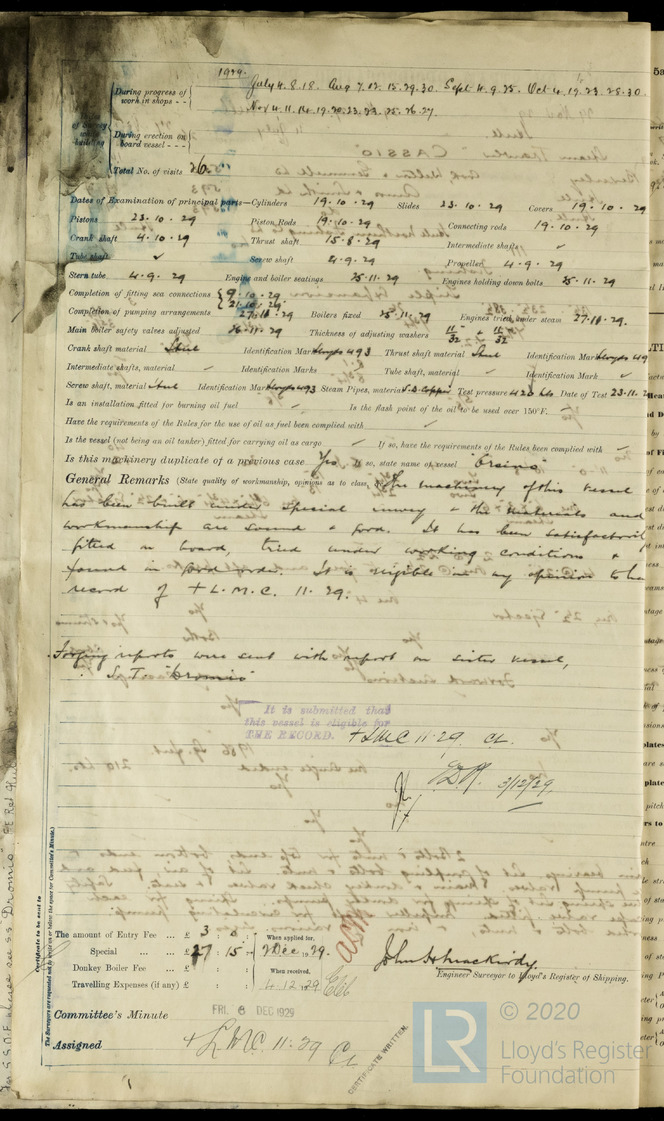 1929.
During progress of work in shops - - July 4. 8. 18. Aug 7. 12. 15. 29. 30. Sept 4. 9. 25. Oct 4. 19. 23. 28. 30.
Nov 4. 11. 14. 19. 20. 23. 25. 26. 27.
During erection on board vessel - - -
Total No. of visits 26.
Dates of Examination of principal parts—Cylinders 19. 10. 29 Slides 23. 10. 29 Covers 19. 10. 29
Pistons 23. 10. 29 Piston Rods 19. 10. 29 Connecting rods 19. 10. 29
Crank shaft 4. 10. 29 Thrust shaft 15. 8. 29 Intermediate shafts ✓
Tube shaft ✓ Screw shaft 4. 9. 29 Propeller 4. 9. 29
Stern tube 4. 9. 29 Engine and boiler seatings 25. 11. 29 Engines holding down bolts 25. 11. 29
Completion of fitting sea connections 9. 10. 29
21. 10. 29
Completion of pumping arrangements 27. 11. 29 Boilers fixed 25. 11. 29 Engines tried under steam 27. 11. 29.
Main boiler safety valves adjusted 26. 11. 29 Thickness of adjusting washers 11/32 11/32
Crank shaft material Steel Identification Mark Lloyds 493 Thrust shaft material Steel Identification Mark Lloyds 49
Intermediate shafts, material ✓ Identification Marks ✓ Tube shaft, material ✓ Identification Mark ✓
Screw shaft, material Steel Identification Mark Lloyds 493 Steam Pipes, material S.D. Copper Test pressure 420 lbs Date of Test 23. 11. 2
Is an installation fitted for burning oil fuel ✓ Is the flash point of the oil to be used over 150°F. ✓
Have the requirements of the Rules for the use of oil as fuel been complied with ✓
Is the vessel (not being an oil tanker) fitted for carrying oil as cargo ✓ If so, have the requirements of the Rules been complied with ✓
Is this machinery duplicate of a previous case Yes If so, state name of vessel "Orsino"
General Remarks (State quality of workmanship, opinions as to class, The machinery of this vessel
has been built under special survey & the materials and
workmanship are sound & good. It has been satisfactoril
fitted on board, tried under working conditions &
found in good order. It is eligible in my opinion to ha
record of + L.M.C. 11. 29.
Forging reports were sent with report on sister vessel,
S.T. "Dromio"
It is submitted that
this vessel is eligible for
THE RECORD. + LMC 11.29. CL.
3/12/29
The amount of Entry Fee ... £ 3 : 0 : When applied for,
Special ... ... £ 27 : 15 : 2 Dec 1929.
Donkey Boiler Fee ... £ : : When received,
Travelling Expenses (if any) £ : : 4. 12. 1929
John H Mackirdy.
Engineer Surveyor to Lloyd's Register of Shipping.
Committee's Minute FRI. 6 DEC 1929
Assigned + LMC. 11.29 CL
CERTIFICATE WRITTEN.
Certificate to be sent to
The Surveyors are requested not to write on or below the space for Committee's Minute.)
© 2020
LR
Lloyd's Register
Foundation